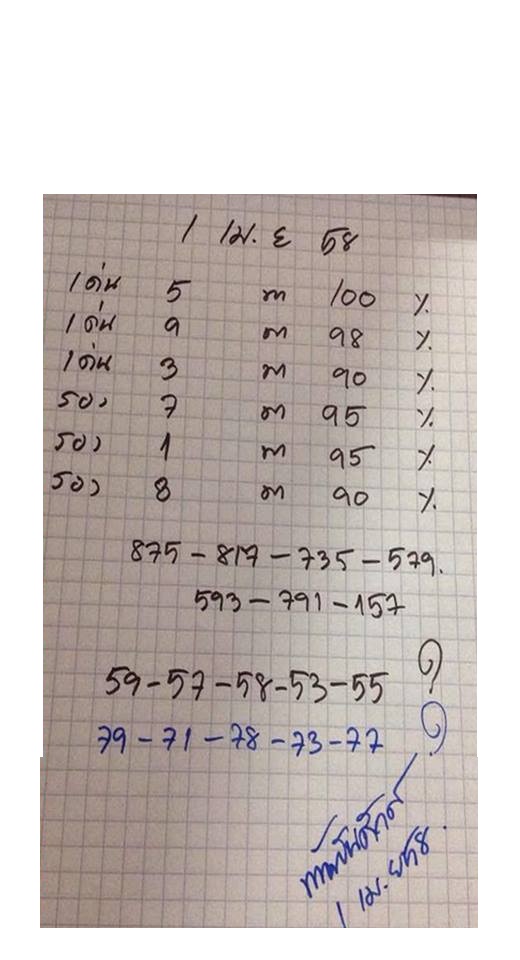 1 เม.ย 58
เด่น 5 ต 100 %
เด่น 9 ต 98 %
เด่น 3 ต 90 %
รอง 7 ต 95 %
รอง 1 ต 95 %
รอง 8 ต 90 %
875 - 817 - 735 - 579.
593 - 791 - 157
59 - 57 - 58 - 53 - 55
79 - 71 - 78 - 73 - 77
1 เม.ย 58.